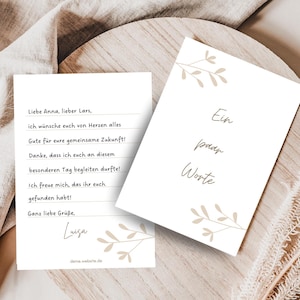 Liebe Anna, lieber Lars,
ich wünsche euch von Herzen alles
Gute für eure gemeinsame Zukunft!
Danke, dass ich euch an diesem
besonderen Tag begleiten dürfte!
Ich freue mich, das ihr euch
gefunden habt!
Ganz liebe Grüße,
Luisa
deine-website.de
Ein
paar
Worte